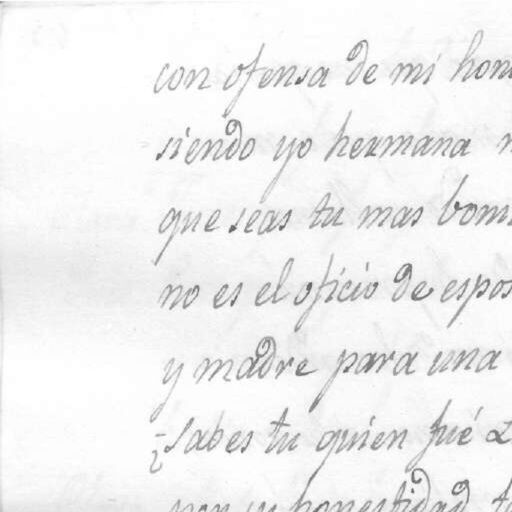 con ofensa de mi hon
siendo yo hermana
que seas tu mas
no es el oficio de espos
y madre para una
¿Sabes tu quien fué
por su honestidad